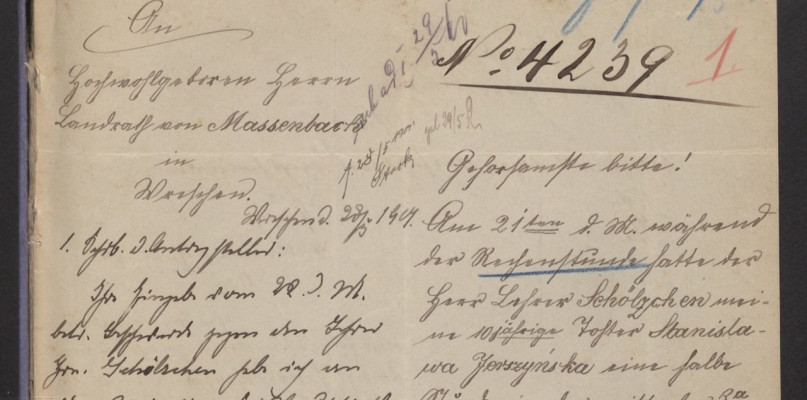 An
Hochwohlgeboren Herrn
Landrath von Massenbach
in
Wreschen.
Wreschen d. 28/5 1901.
1. Schrb. d. Antragsteller:
Ihre Eingabe vom 28. d. M.
betr. Beschwerde gegen den Lehrer
Hrn. Schölzchen habe ich an
29/5
No 4239 1
Gehorsamste bitte!
Am 21ten d. M. während
der Rechenstunde hatte der
Herr Lehrer Schölzchen mei-
ne 10jährige Tohter Stanisla-
wa Jerszyńska eine halbe